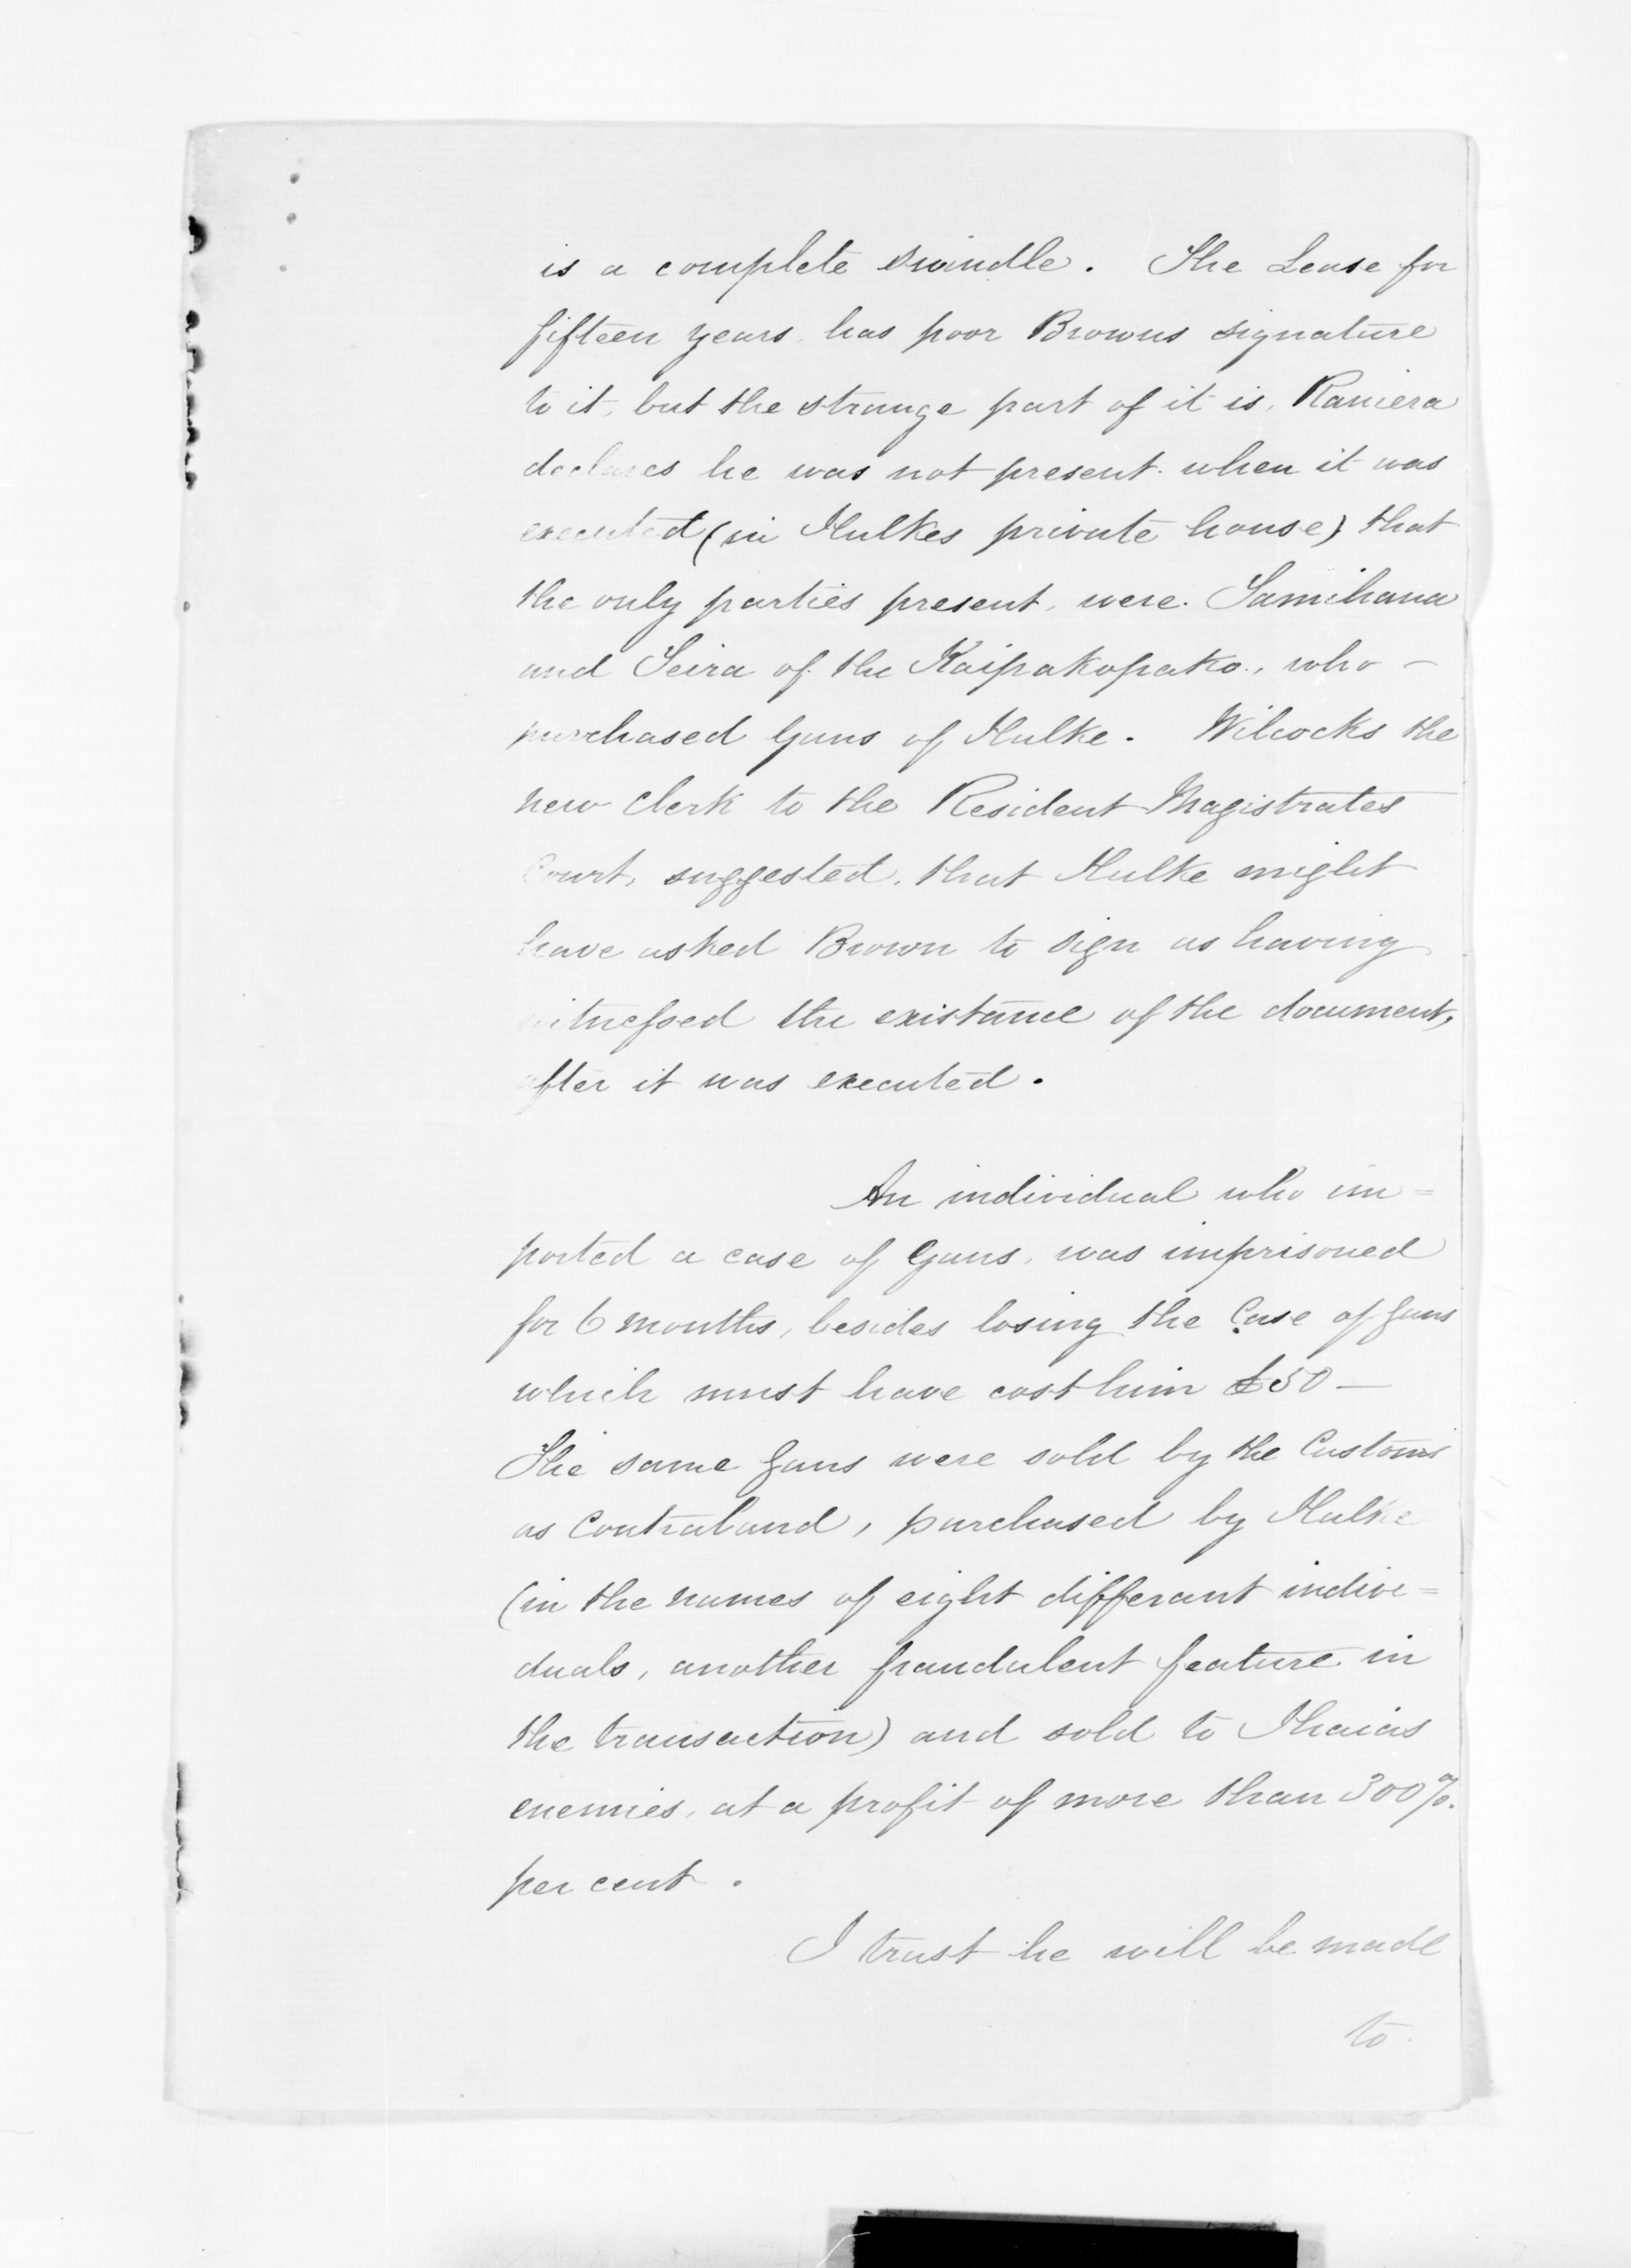 is a complete swindle. The Lease for
fifteen years, has poor Browns signature
to it, but the strange part of it is, Raniera
declares he was not present when it was
executed (in Hulkes private house) that
the only parties present, were Tamihana
and Teira of the Kaipakopako, who –
purchased Guns of Hulke. Wilcocks the
new Clerk to the Resident Magistrates
Court, suggested, that Hulke might
have asked Brown to sign as having
witnessed the existance of the document,
after it was executed.
An individual who im=
ported a case of Guns, was imprisoned
for 6 months, besides losing the Case of Guns
which must have cost him £50 —
The same Guns were sold by the Customs
as Contraband, purchased by Hulke
(in the names of eight differant indivi=
duals, another fraudulent feature in
the transaction) and sold to Ihaias
enemies, at a profit of more than 300%.
per cent.
I trust he will be made
to